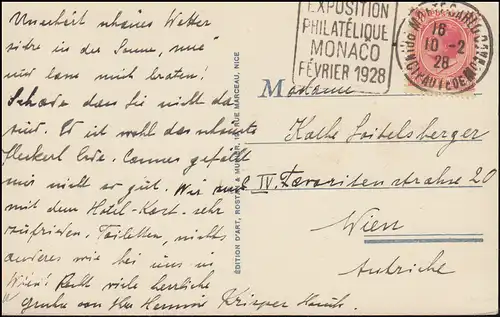 Unerhört schönes Wetter
sitze in der Sonne, mie
und lang mich braten!
Schade dass Sie nicht da
sind. Es ist wohl das schönste
Fleckerl Erde. Cannes gefällt
mir nicht so gut. Wir sind
mit dem Hotel-Kart. sehr
zufrieden. Toiletten, nichts
anderes wie bei uns in
Wien! Recht viel herzliche
Grüße von
EDITION D'ART, ROSTAN & MUNIER, RUE MARCEAU, NICE
EXPOSITION
PHILATÉLIQUE
MONACO
FÉVRIER 1928
MONTE-CARLO
16
10 -2
28
PTÉ DE MONACO
Madame
Käthe Loitelsberger
IV. Favoritenstrasse 20
Wien
Autriche